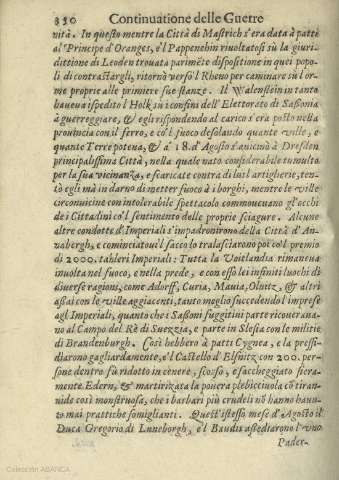 850 Continuatione delle Guerre
nità. In questo mentre la Città di Mastrich s'era data à patti
al Principe d'Oranges, e'l Pappenehin riuoltatosi sù la giuri-
dittione di Leoden trouata parimète dispositione in quei popo-
li di contrastargli, ritornò verso'l Rheno per caminare sù l'or-
me proprie alle primiere sue stanze. Il Walenstein in tanto
haueua ispedito l'Holk su i confini dell'Elettorato di Sassonia
à guerreggiare, & egli rispondendo al carico s'era posto nella
prouincia con il ferro, e co'l fuoco desolando quante ville, e
quante Terre poteua, & à 18. d'Agosto s'auicinò à Dresden
principalissima Città, nella quale nato considerabile tumulto
per la sua vicinanza, e scaricate contra di lui l'artiglierie, ten-
tò egli mà in darno di metter fuoco à i borghi, mentre le ville
circonuicine con intolerabile spettacolo commoueano gl'occhi
de i Cittadini co'l sentimento delle proprie sciagure. Alcune
altre condotte d'Imperiali s'impadronirono della Città d'An-
nabergh, e cominciatoui'l sacco lo tralasciarono poi co'l premio
di 2000. talleri Imperiali: Tutta la Voitlandia rimaneua
inuolta nel fuoco, e nella prede, e con essolei infiniti luochi di
diuerse ragioni, come Adorff, Curia, Mauia, Olnitz, & altri
assai con le ville aggiacenti, tanto meglio succedendo l'imprese
agl Imperiali, quanto che i Sassoni fuggitiui parte ricouerana-
no al Campo del Rè di Suezzia, e parte in Slesia con le militie
di Brandenburgh. Così hebbero à patti Cygnea, e la pressi-
diarono gagliardamente, e'l Castello d'Elsnitz con 200. per-
sone dentro fù ridotto in cenere, scorso, e saccheggiato fiera-
mente Edern, & martirizata la pouera plebicciuola cō tiran-
nide così monstruosa, che i barbari più crudeli nō hanno hauu-
to mai prattiche somiglianti. Quest'istesso mese d'Agosto il
Duca Gregorio di Luneborgh, e'l Baudis assediarono l'vno
Pader-
Colección ABANCA